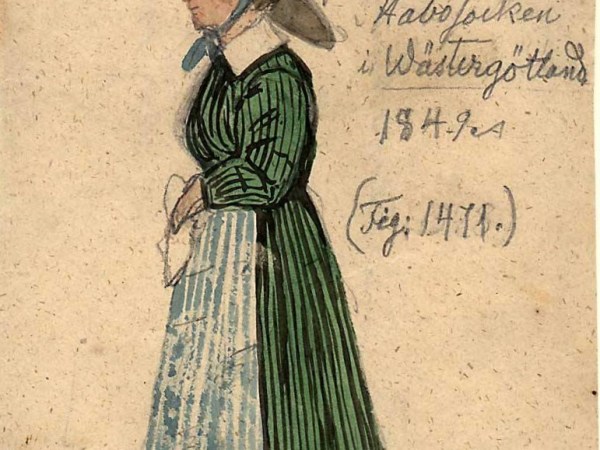 Habosocken
i Wästergötland
1849
(Fig: 1471.)